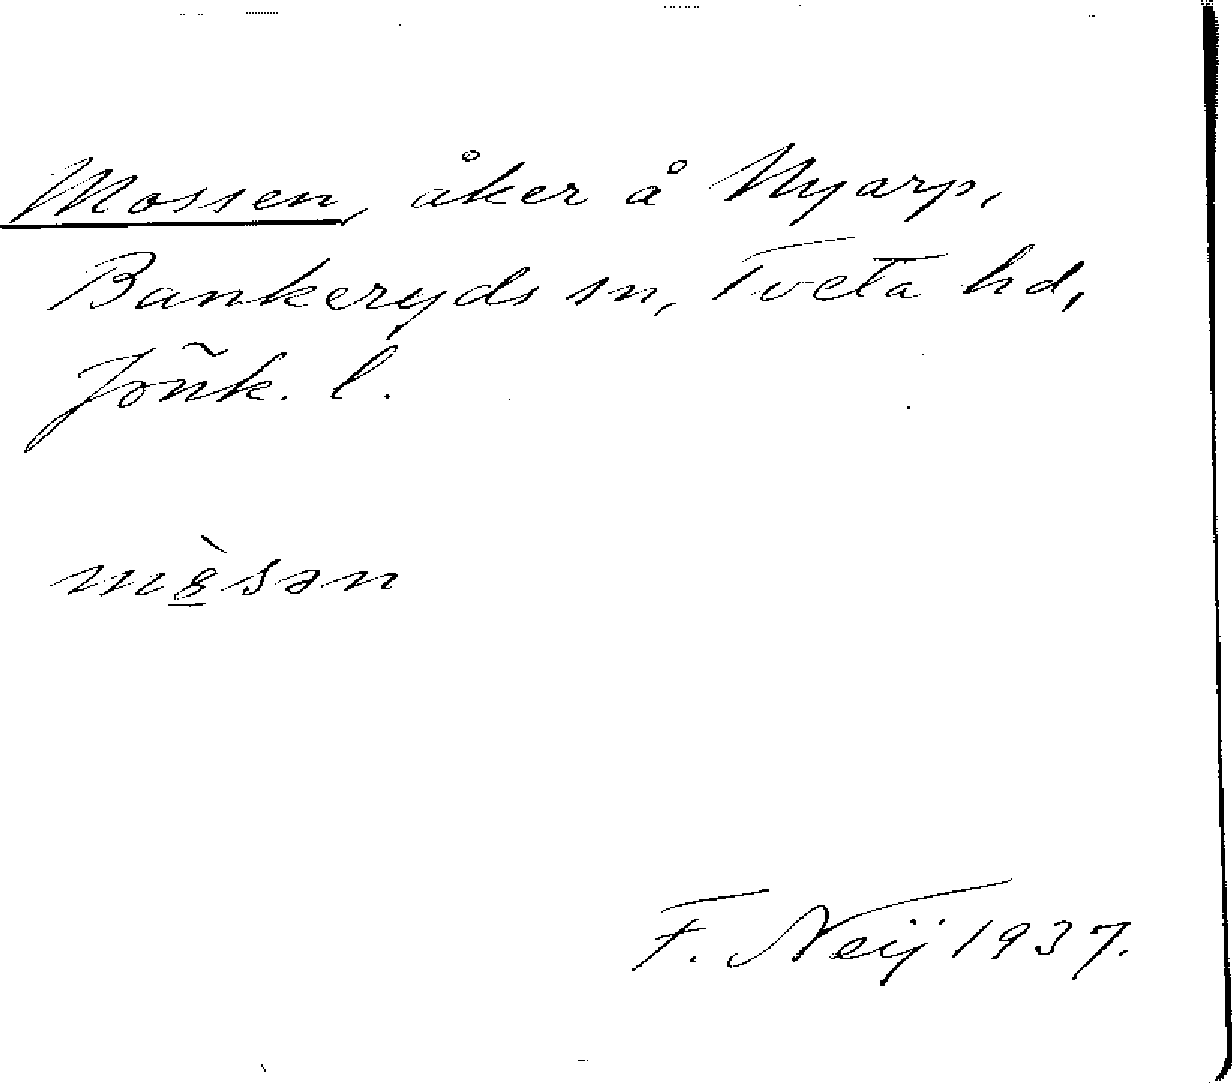 Mossen, åker å Nyarp,
Bankeryds sn, Tveta hd,
Jönk. l.
F. Neij 1937.